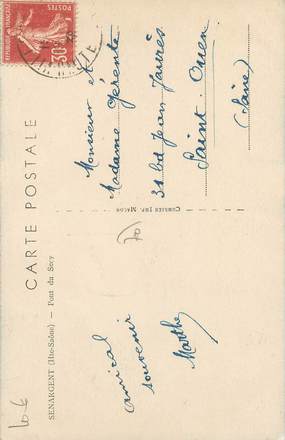 CARTE POSTALE
SENARGENT (Hte-Saône) — Pont du Scey
COMBIER IMP. MACON
POSTES
REPUBLIQUE FRANÇAISE
30c
amical
souvenir
Marthe
Monsieur et
Madame Gérente
31 bd Jean Jaurès
Saint-Ouen
(Seine)
70